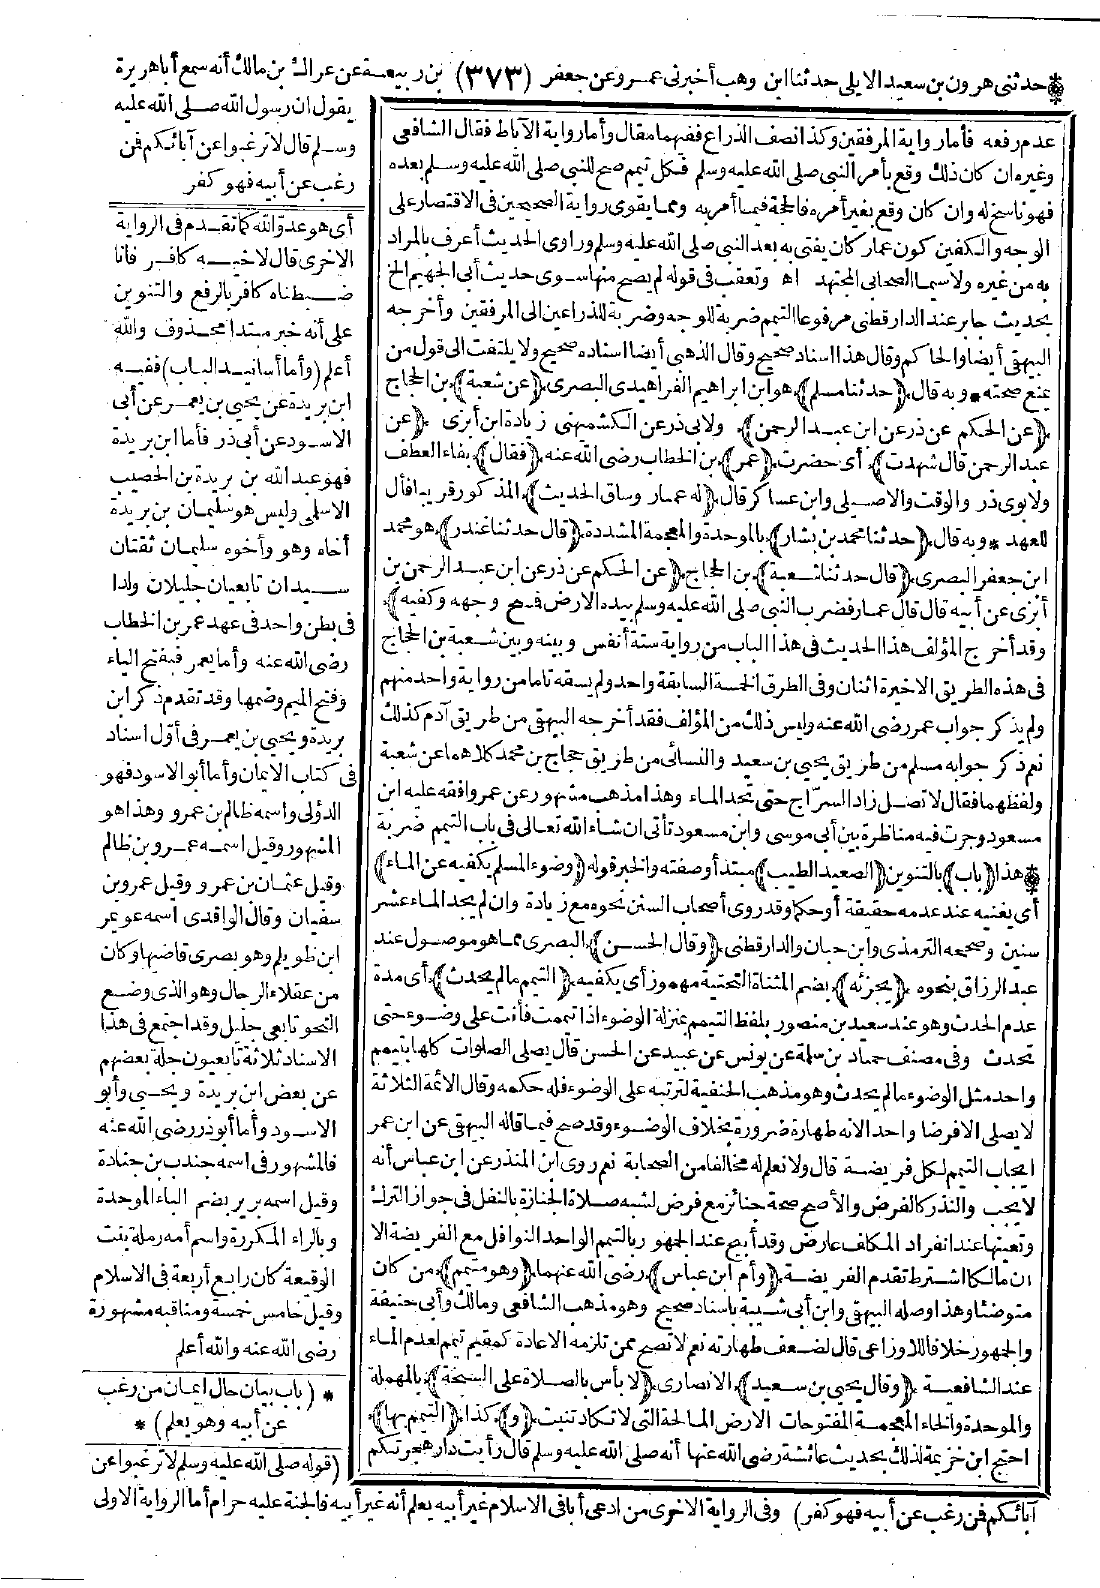 حدثنى هرون بن سعيد الايلى حدثنا ابن وهب أخبرنى عمرو عن جعفر (٣٧٣) بن ربيعة عن عراك بن مالك أنه سمع أباهريرة
يقول ان رسول الله صلى الله عليه
وسلم قال لا ترغبوا عن آبائكم فن
رغب عن أبيه فهو كفر
أى هو عدوّ الله كما تقدم فى الرواية
الاخرى قال لاخيه كافر فانا
ضبطناه كافر بالرفع والتنوين
على أنه خبر مبتدا محذوف والله
أعلم (وأما أسانيد الباب) ففيه
ابن بريدة عن يحيى بن يعمر عن أبى
الاسود عن أبى ذر فأما ابن بريدة
فهو عبد الله بن بريدة بن الحصيب
الاسلمى وليس هو سليمان بن بريدة
أخاه وهو وأخوه سليمان ثقتان
سيدان تابعيان جليلان ولدا
فى بطن واحد فى عهد عمر بن الخطاب
رضى الله عنه وأما يعمر فبفتح الياء
وفتح الميم وضمها وقد تقدم ذكر ابن
بريدة ويحيى بن يعمر فى أوّل اسناد
فى كتاب الايمان وأما أبو الاسود فهو
الدؤلى واسمه ظالم بن عمرو وهذا هو
المشهور وقيل اسمه عمرو بن ظالم
وقيل عثمان بن عمرو وقيل عمرو بن
سفيان وقال الواقدى اسمه عويمر
ابن ظويلم وهو بصرى قاضيها وكان
من عقلاء الرجال وهو الذى وضع
النحو تابعى جليل وقد اجتمع فى هذا
الاسناد ثلاثة تابعيون جلة بعضهم
عن بعض ابن بريدة ويحيى وأبو
الاسود وأما أبو ذر رضى الله عنه
فالمشهور فى اسمه جندب بن جنادة
وقيل اسمه برير بضم الباء الموحدة
وبالراء المكررة واسم أمه رملة بنت
الوقيعة كان رابع أربعة فى الاسلام
وقيل خامس خمسة ومناقبه مشهورة
رضى الله عنه والله أعلم
* (باب بيان حال ايمان من رغب
عن أبيه وهو يعلم) *
(قوله صلى الله عليه وسلم لا ترغبوا عن
آبائكم فن رغب عن أبيه فهو كفر) وفى الرواية الاخرى من ادعى أبا فى الاسلام غير أبيه يعلم أنه غير أبيه فالجنة عليه حرام أما الرواية الاولى
عدم رفعه فأما رواية المرفقين وكذا نصف الذراع ففيهما مقال وأما رواية الآباط فقال الشافعى
وغيره ان كان ذلك وقع بأمر النبى صلى الله عليه وسلم فكل تيمم صح للنبى صلى الله عليه وسلم بعده
فهو ناسخ له وان كان وقع بغير أمره فالحجة فيما أمر به ومما يقوى رواية الصحيحين فى الاقتصار على
الوجه والكفين كون عمار كان يفتى به بعد النبى صلى الله عليه وسلم وراوى الحديث أعرف بالمراد
به من غيره ولا سيما الصحابى المجتهد اه وتعقب فى قوله لم يصح منها سوى حديث أبى الجهيم الخ
بحديث جابر عند الدارقطنى مرفوعا التيمم ضربة للوجه وضربة للذراعين الى المرفقين وأخرجه
البيهقى أيضا والحاكم وقال هذا اسناد صحيح وقال الذهبى أيضا اسناده صحيح ولا يلتفت الى قول من
يمنع صحته * وبه قال (حدثنا مسلم) هو ابن ابراهيم الفراهيدى البصرى (عن شعبة) بن الحجاج
(عن الحكم عن ذر عن ابن عبد الرحمن) ولابى ذر عن الكشميهنى زيادة ابن أبزى (عن
عبد الرحمن قال شهدت) أى حضرت (عمر) بن الخطاب رضى الله عنه (فقال) بفاء العطف
ولابوى ذر والوقت والاصيلى وابن عساكر قال (له عمار وساق الحديث) المذكور قريبا فأل
للعهد * وبه قال (حدثنا محمد بن بشار) بالموحدة والمعجمة المشددة (قال حدثنا غندر) هو محمد
ابن جعفر البصرى (قال حدثنا شعبة) بن الحجاج (عن الحكم عن ذر عن ابن عبد الرحمن بن
أبزى عن أبيه قال قال عمار فضرب النبى صلى الله عليه وسلم بيده الارض فمسح وجهه وكفيه)
وقد أخرج المؤلف هذا الحديث فى هذا الباب من رواية ستة أنفس وبينه وبين شعبة بن الحجاج
فى هذه الطريق الاخيرة اثنان وفى الطرق الخمسة السابقة واحد ولم يسقه تاما من رواية واحد منهم
ولم يذكر جواب عمر رضى الله عنه وليس ذلك من المؤلف فقد أخرجه البيهقى من طريق آدم كذلك
نعم ذكر جوابه مسلم من طريق يحيى بن سعيد والنسائى من طريق حجاج بن محمد كلاهما عن شعبة
ولفظهما فقال لا تصل زاد السرّاج حتى تجد الماء وهذا مذهب مشهور عن عمر وافقه عليه ابن
مسعود وجرت فيه مناظرة بين أبى موسى وابن مسعود تأتى ان شاء الله تعالى فى باب التيمم ضربة
هذا (باب) بالتنوين (الصعيد الطيب) مبتدأ وصفته والخبر قوله (وضوء المسلم يكفيه عن الماء)
أى يغنيه عند عدمه حقيقة أو حكما وقد روى أصحاب السنن نحوه مع زيادة وان لم يجد الماء عشر
سنين وصححه الترمذى وابن حبان والدارقطنى (وقال الحسن) البصرى مما هو موصول عند
عبد الرزاق بنحوه (يجزئه) بضم المثناة التحتية مهموز أى يكفيه (التيمم ما لم يحدث) أى مدة
عدم الحدث وهو عند سعيد بن منصور بلفظ التيمم بمنزلة الوضوء اذا تيممت فأنت على وضوء حتى
تحدث وفى مصنف حماد بن سلمة عن يونس عن عبيد عن الحسن قال يصلى الصلوات كلها بتيمم
واحد مثل الوضوء ما لم يحدث وهو مذهب الحنفية لترتبه على الوضوء فله حكمه وقال الائمة الثلاثة
لا يصلى الا فرضا واحد الانه طهارة ضرورة بخلاف الوضوء وقد صح فيما قاله البيهقى عن ابن عمر
ايجاب التيمم لكل فريضة قال ولا نعلم له مخالفا من الصحابة نعم روى ابن المنذر عن ابن عباس أنه
لا يجب والنذر كالفرض والأصح صحة جنائز مع فرض لشبه صلاة الجنازة بالنفل فى جواز الترك
وتعينها عند انفراد المكلف عارض وقد أبيح عند الجمهور بالتيمم الواحد النوافل مع الفريضة الا
ان مالكا اشترط تقدم الفريضة (وأم ابن عباس) رضى الله عنهما (وهو متيمم) من كان
متوضئا وهذا وصله البيهقى وابن أبى شيبة باسناد صحيح وهو مذهب الشافعى ومالك وأبى حنيفة
والجمهور خلافا للاوزاعى قال لضعف طهارته نعم لا تصح ممن تلزمه الاعادة كمقيم تيمم لعدم الماء
عند الشافعية (وقال يحيى بن سعيد) الانصارى (لا بأس بالصلاة على السبخة) بالمهملة
والموحدة والخاء المعجمة المفتوحات الارض المالحة التى لا تكاد تنبت (و) كذا (التيمم بها)
احتج ابن خزيمة لذلك بحديث عائشة رضى الله عنها أنه صلى الله عليه وسلم قال رأيت دار هجرتكم